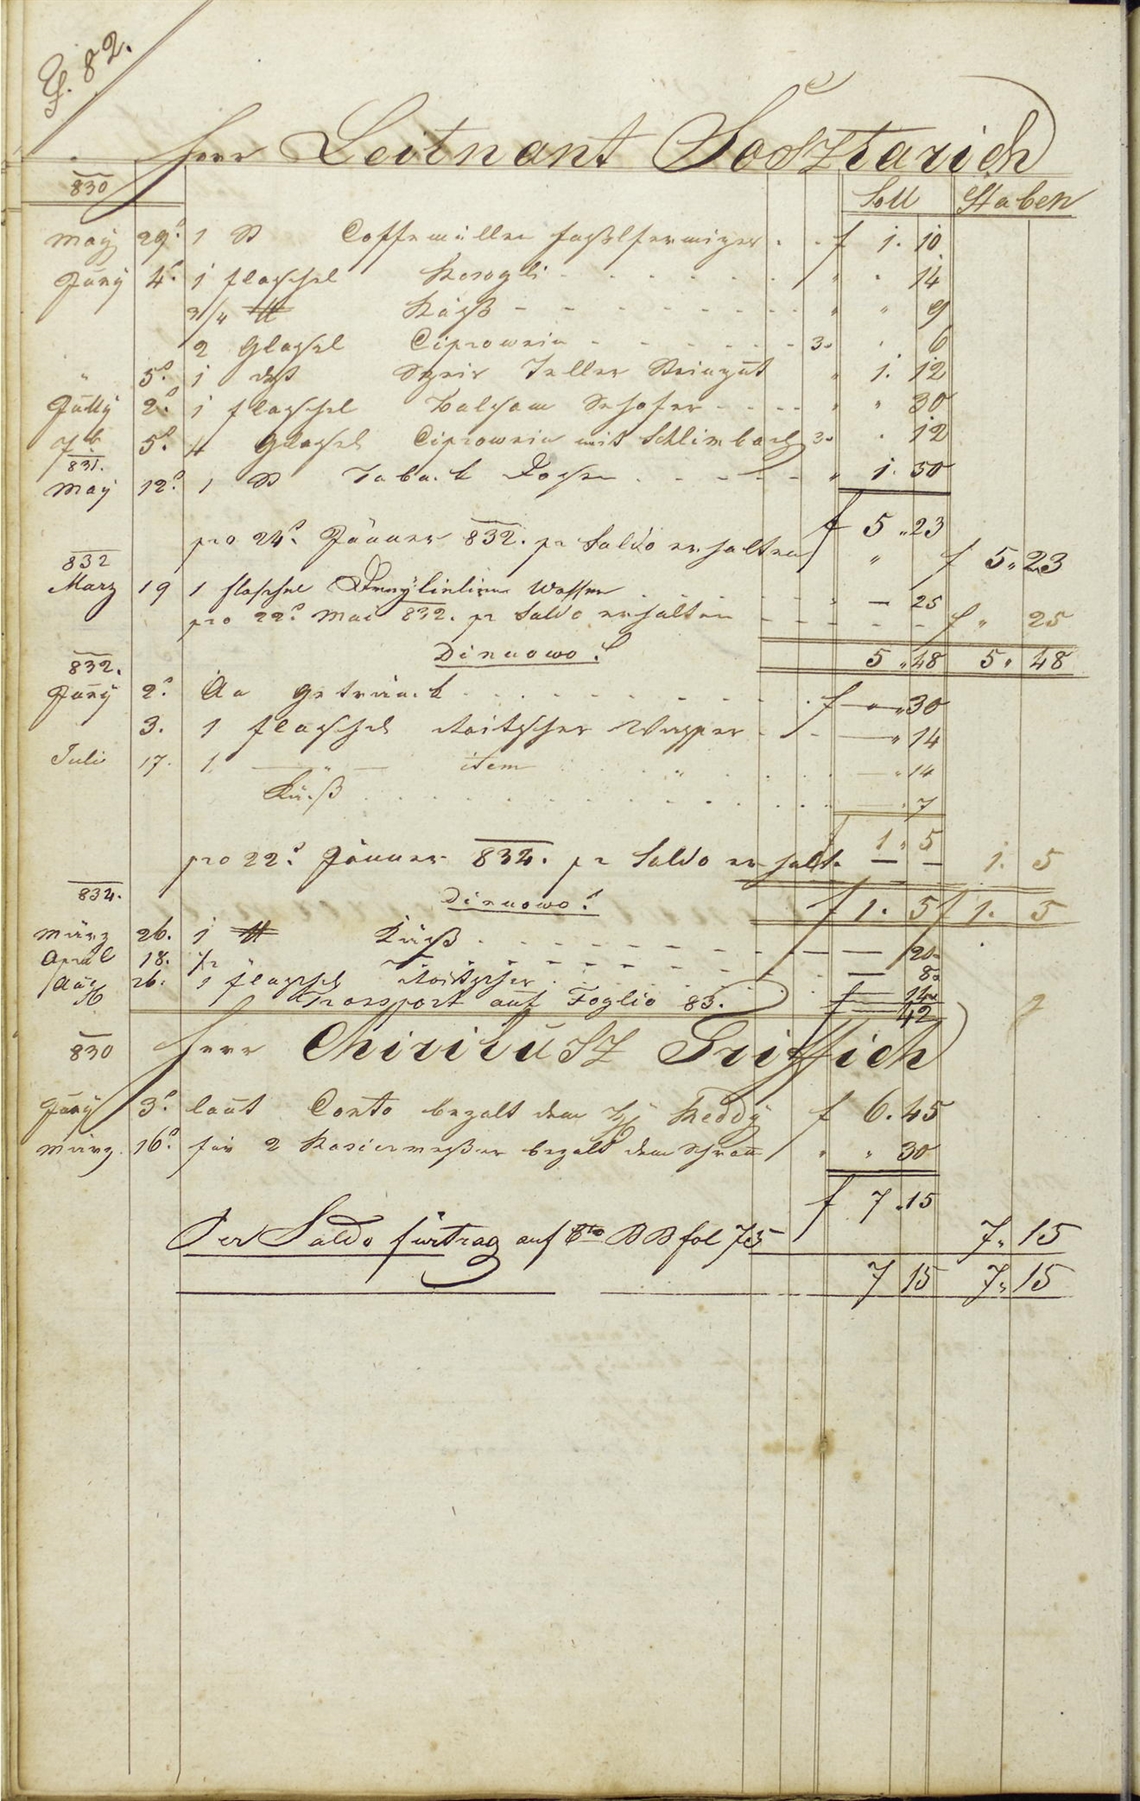 F. 82.
Herr Leitnant Sosztarich
830
Soll Haben
May 29. 1 St Coffemüller f 1. 10
Juny 4. 1 flaschel Rosogli 14
3/4 ℔ Käß 9
2 Glasel Ciprowein 3 6
5. 1 Speis Teller Steingut 1. 12
Jully 2. 1 flaschel Balsam 30
7b 5. 4 Glasel Ciprowein mit Schlimbach 3 12
831.
May 12. 1 St Taback Dosen 1. 50
f 5 23
pro 24. Jänner 832. pr Saldo erhalten f 5 23
832
Marz 19 1 flaschel Wasser 25
pro 22. Mai 832. pr Saldo erhalten f 25
5 48 5 48
Dinuowo
832.
Juny 2. An Getränck f 30
3. 1 flaschel Roitscher Wasser 14
Juli 17. 1 item 14
Käß 7
1 5
pro 22. Jänner 834. pr Saldo erhalt. 1. 5
834.
Dinuowo
f 1. 5 f 1. 5
März 26. 1 ℔ Käß 20
April 18. 1/2 8
26. 1 flaschel Roitscher 14
Transport auf Foglio 83. f 42
830
Herr Chirirusz Griffich
Juny 3. laut Conto bezalt dem Reddy f 6. 45
März 16. für 2 Rasiermeßer bezalt dem 30
f 7. 15
Per Saldo fürtrag auf BB fol 75 7 15
7 15 7 15